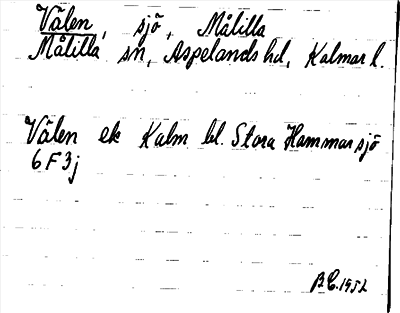 Välen, sjö, Målilla
Målilla sn, Aspelands hd, Kalmar l.
Välen ek Kalm bl. Stora Hammarsjö
6F3j
B.C. 1952